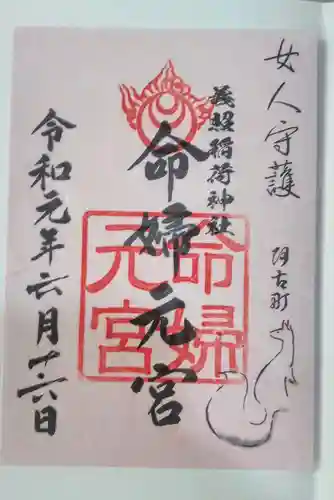 女人守護
阿古町
義照稲荷神社
命婦元宮
命婦
元宮
令和元年六月十六日